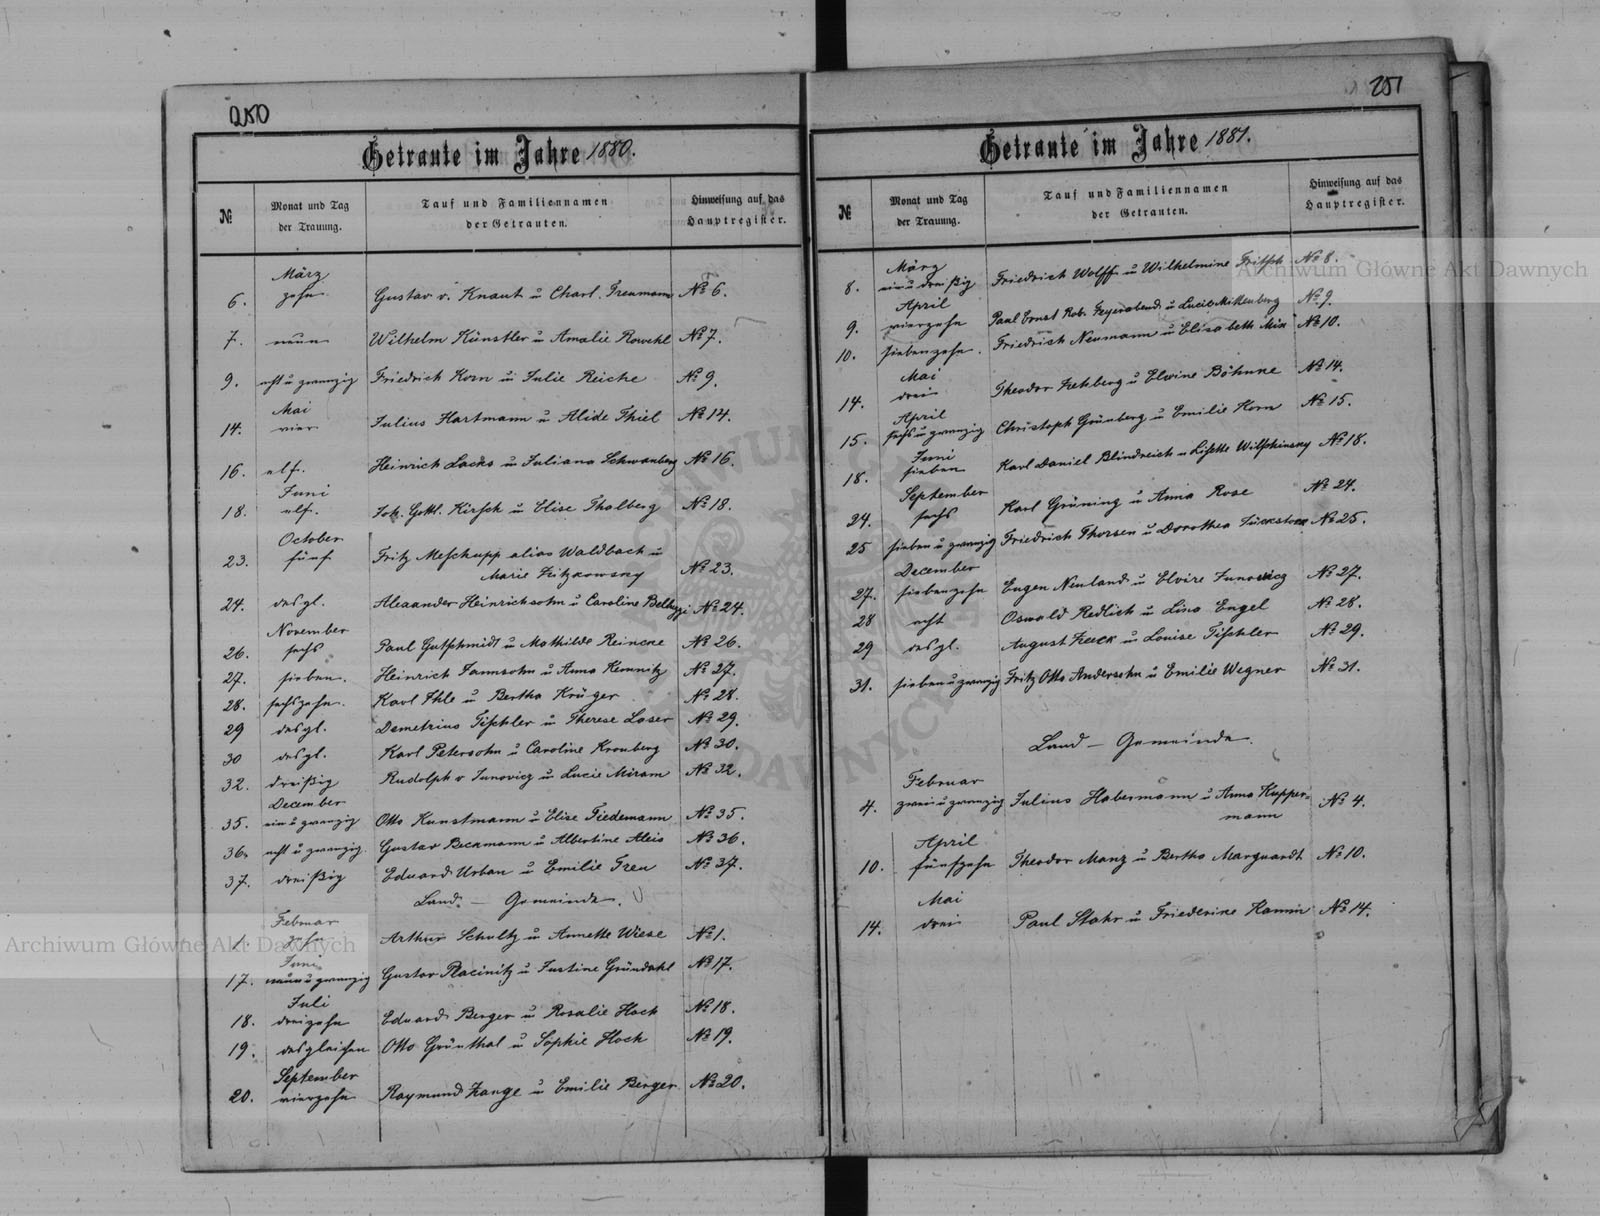 250
Getraute im Jahre 1880.
№
Monat und Tag
der Trauung.
Tauf und Familiennamen
der Getrauten.
Hinweisung auf das
Hauptregister.
März
6. zehn Gustav v. Knaut u Charl. Treumann № 6.
7. neun Wilhelm Künstler u Amalie Rowehl № 7.
9. acht u zwanzig Friedrich Korn u Julie Reiche № 9.
Mai
14. vier Julius Hartmann u Alide Thiel № 14.
16. elf. Heinrich Lacks u Juliana Schwanberg № 16.
Juni
18. elf. Joh. Gottl. Kirsch u Elise Thalberg № 18.
October
23. fünf Fritz Meschupp alias Waldbach u
Marie Zitzkowsky № 23.
24. desgl. Alexander Heinrichsohn u Caroline № 24.
November
26. sechs Paul Gutschmidt u Mathilde Reincke № 26.
27. sieben. Heinrich Jannsohn u Anna Kemnitz № 27.
28. sechszehn. Karl Ihle u Bertha Krüger № 28.
29 desgl. Demetrius Tischler u Therese Laser № 29.
30 desgl. Karl Petersohn u Caroline Kronberg № 30.
32. dreißig Rudolph v Junovicz u Lucie Miram № 32.
December
35. ein u zwanzig Otto Kunstmann u Elise Tiedemann № 35.
36. acht u zwanzig. Gustav Beckmann u Albertine Aleis № 36.
37. dreißig Eduard Urban u Emilie Treu № 37.
Land. — Gemeinde.
Februar
1. zehn Arthur Schultz u Annette Wiese № 1.
Juni
17. neun u zwanzig Gustav Racinitz u Justine Gründahl № 17.
Juli
18. dreizehn Eduard Berger u Rosalie Hoch № 18.
19. desgleichen Otto Grünthal u Sophie Hoch № 19.
September
20. vierzehn Raymund Zange u Emilie Berger № 20.
251
Getraute im Jahre 1881.
№
Monat und Tag
der Trauung.
Tauf und Familiennamen
der Getrauten.
Hinweisung auf das
Hauptregister.
März
8. ein u dreißig Friedrich Wolff u Wilhelmine Fritsch № 8.
April
9. vierzehn Paul Ernst Rob. Feyerabend u Lucie Mittenberg № 9.
10. siebenzehn. Friedrich Neumann u Elisabeth Mix № 10.
Mai
14. drei Theodor Rehberg u Elwine Böhnke № 14.
April
15. sechs u zwanzig Christoph Grünberg u Emilie Korn № 15.
Juni
18. sieben Karl Daniel Blindreich u Lisette Wilschinsky № 18.
September
24. sechs Karl Grüning u Anna Rose № 24.
25 sieben u zwanzig Friedrich Thorsen u Dorothea № 25.
December
27. siebenzehn Eugen Neuland u Elvire Junowicz № 27.
28 acht Oswald Redlich u Lina Engel № 28.
29 desgl. August Zuck u Louise Tischler № 29.
31. sieben u zwanzig Fritz Otto Andersohn u Emilie Wegner № 31.
Land — Gemeinde.
Februar
4. zwei u zwanzig Julius Habermann u Anna Kupper-
mann № 4.
April
10. fünfzehn Theodor Manz u Bertha Marquardt № 10.
Mai
14. drei Paul Stahr u Friederike Kamin № 14.
Archiwum Główne Akt Dawnych
Archiwum Główne Akt Dawnych